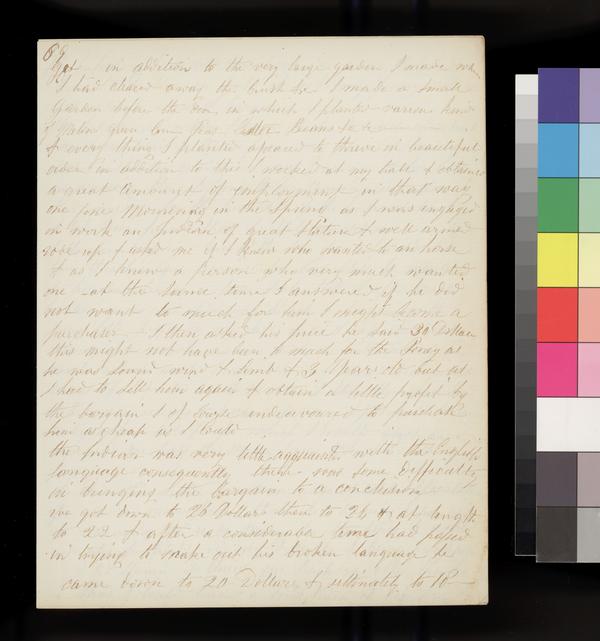 69
in addition to the very large garden I made when
I had cleared away the brush &c I made a small
Garden before the door in which I planted various kind
of green Corn Peas Beans &c &c
& every thing I planted appeared to thrive in beautiful
order in addition to this I worked at my trade & obtained
a great amount of employment in that way
one fine Mourning in the Spring as I was engaged
in work an Indian of great stature & well armed
rode up & asked me if I knew who wanted to an horse
& as I knew a person who very much wanted
one at the same time I answered if he did
not want to much for him I might become a
purchaser I then asked his price he said 30 Dollars
this might not have been to much for the Poney as
he was sound wind & limb & 3 years old but as
I had to sell him again & obtain a little profit by
the bargain I of course endeavoured to purchase
him as cheap as I could
the Indian was very little acquainted with the English
language consequently there was some difficulty
in bringing the bargain to a conclusion
we got down to 28 Dollars then to 26 & at length
to 22 & after a considerable time had passed
in trying to make out his broken language he
came down to 20 Dollars & ultimately to 18